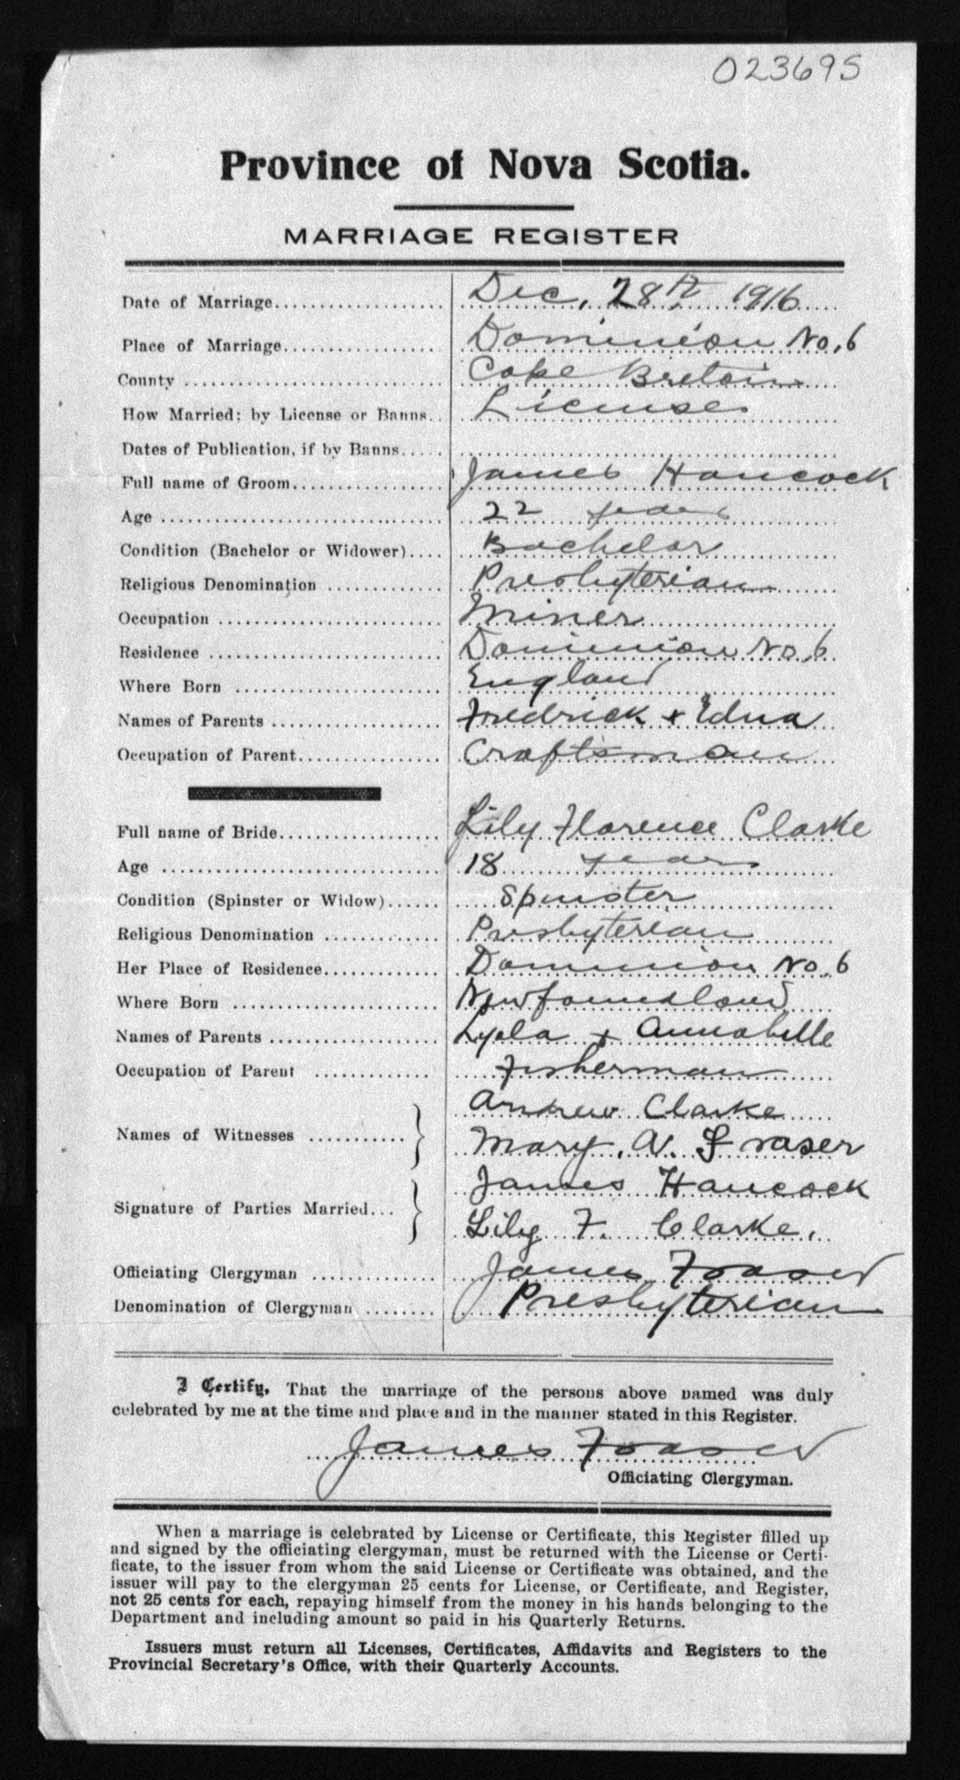 023695
Province of Nova Scotia.
MARRIAGE REGISTER
Date of Marriage.................... Dec, 28th 1916
Place of Marriage................... Dominion No. 6
County .............................. Cape Breton
How Married; by License or Banns.. License
Dates of Publication, if by Banns.....
Full name of Groom.................. James Hancock
Age ................................. 22 years
Condition (Bachelor or Widower).... Bachelor
Religious Denomination ............. Presbyterian
Occupation ......................... Miner
Residence .......................... Dominion No. 6
Where Born ........................ England
Names of Parents ................... Fredrick + Edna
Occupation of Parent................ Craftsman
Full name of Bride................... Lily Florence Clarke
Age ................................. 18 years
Condition (Spinster or Widow)...... Spinster
Religious Denomination ............. Presbyterian
Her Place of Residence.............. Dominion No. 6
Where Born ........................ Newfoundland
Names of Parents ................... + Annabelle
Occupation of Parent .............. Fisherman
Andrew Clarke
Names of Witnesses ........... Mary. A. Fraser
James Hancock
Signature of Parties Married... Lily F. Clarke.
Officiating Clergyman .............. James Fraser
Denomination of Clergyman ........ Presbyterian
I Certify, That the marriage of the persons above named was duly
celebrated by me at the time and place and in the manner stated in this Register.
James Fraser
Officiating Clergyman.
When a marriage is celebrated by License or Certificate, this Register filled up
and signed by the officiating clergyman, must be returned with the License or Certi-
ficate, to the issuer from whom the said License or Certificate was obtained, and the
issuer will pay to the clergyman 25 cents for License, or Certificate, and Register,
not 25 cents for each, repaying himself from the money in his hands belonging to the
Department and including amount so paid in his Quarterly Returns.
Issuers must return all Licenses, Certificates, Affidavits and Registers to the
Provincial Secretary's Office, with their Quarterly Accounts.